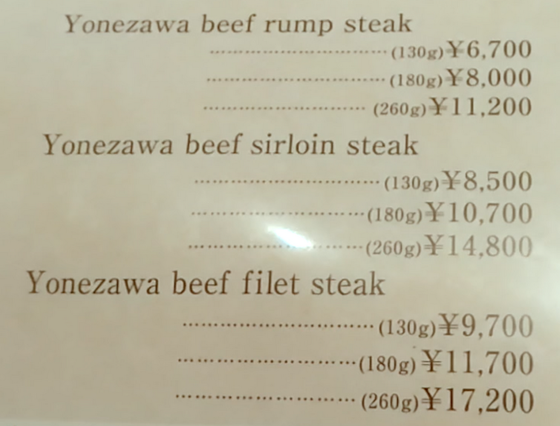 Yonezawa beef rump steak
(130g)¥6,700
(180g)¥8,000
(260g)¥11,200
Yonezawa beef sirloin steak
(130g)¥8,500
(180g)¥10,700
(260g)¥14,800
Yonezawa beef filet steak
(130g)¥9,700
(180g)¥11,700
(260g)¥17,200